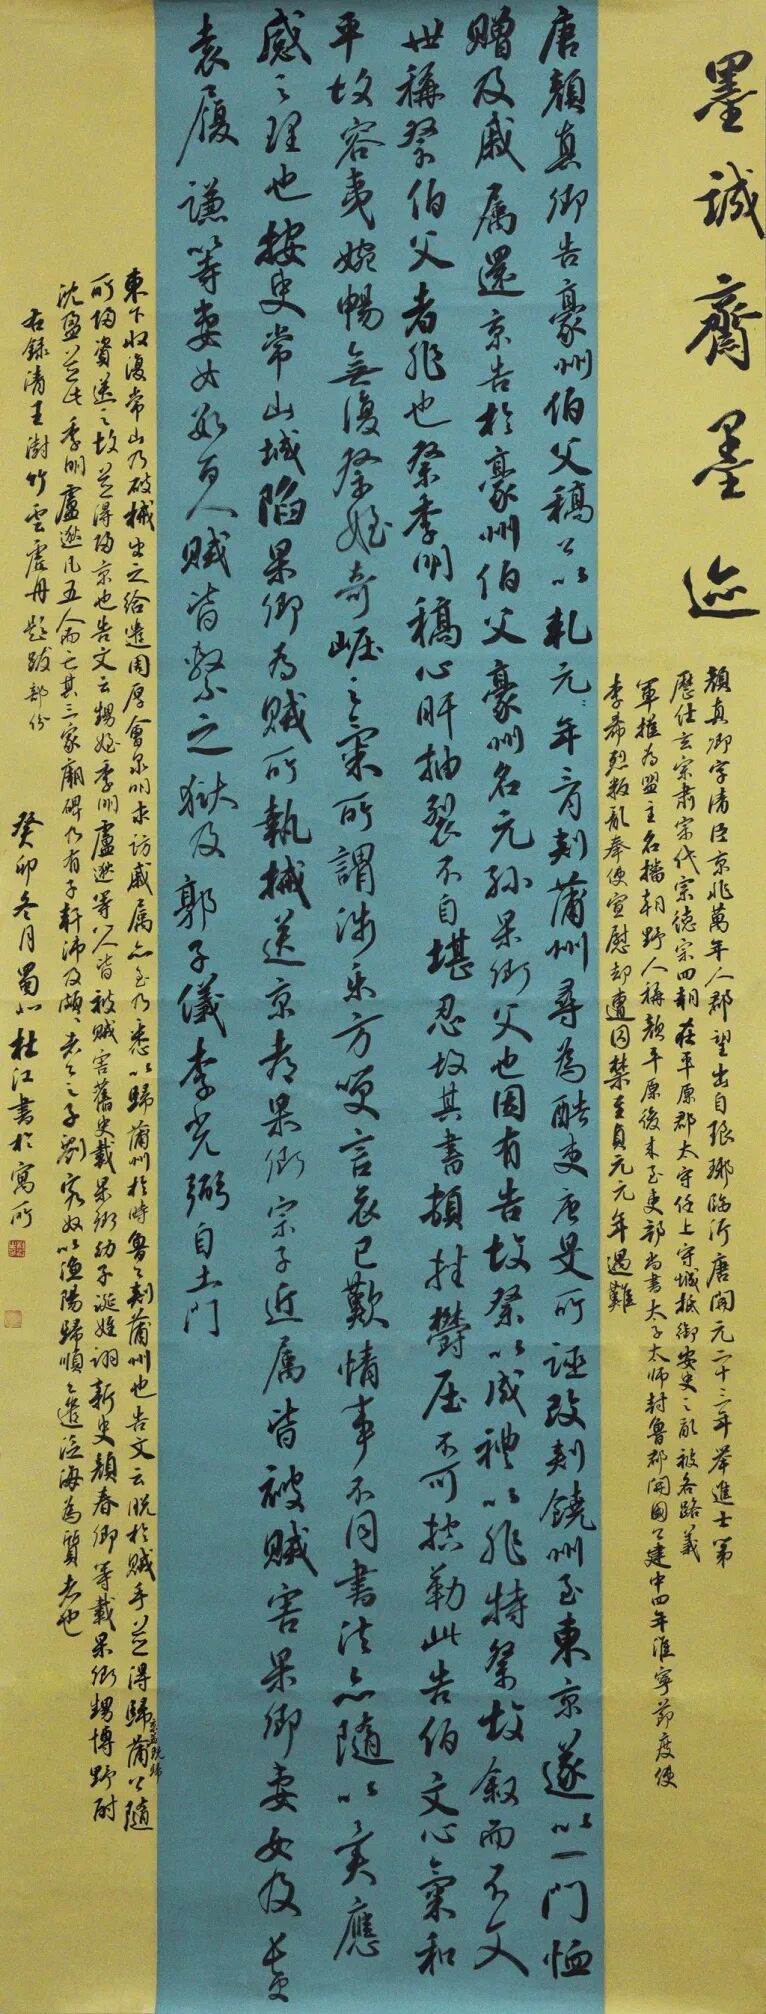 墨诚齋墨迹
颜真卿字清臣京兆萬年人郡望出自琅琊臨沂唐開元二十二年举進士第
歷仕玄宗肃宗代宗德宗四朝在平原郡太守任上守城抵御安史之亂被各路義
軍推為盟主名播朝野人稱颜平原後来至吏部尚書太子太师封魯郡開國公建中四年淮寧節度使
李希烈叛乱奉使宣慰却遭囚禁至貞元元年遇難
唐颜真卿告豪州伯父稿公以乾元元年音刾蒲州尋為酷吏唐旻所誣改刾饒州至東京遂以一門恤
赠及戚属還京告於豪州伯父豪州名元孙杲卿父也因有告故祭以成禮以非特祭故叙而不文
世稱祭伯父者非也祭季明稿心肝抽裂不自堪忍故其書頓挫欝屈不可控勒此告伯文心氣和
平故容夷婉暢無復祭姪奇崛之氣所謂涉乐方笑言哀已歎情事不同書法亦随以異應
感之理也按史常山城陷杲卿為賊所執械送京都杲卿宗子近属皆被贼害杲卿妻女及
袁履謙等妻女数百人贼皆繫之獄及郭子儀李光弼自土門
東下收復常山乃破械出之给遣周厚會泉明求访戚属亦至乃悉以歸蒲州於時魯公刾蒲州也告文云脱於贼手並得歸蒲公随
所陷資送之故並得陷京也告文云甥姪季明盧逖等八人皆被贼害舊史載杲卿幼子诞姪诩新史颜春卿等載杲卿甥博野尉
沈盈并此季明盧逖凡五人而亡其三家廟碑乃有子軒沛及頗公老之子劉家奴以渔陽歸順公遣泛海為質者也
右録清王澍竹雲虚舟题跋部份
癸卯冬月蜀人杜江書於寓所